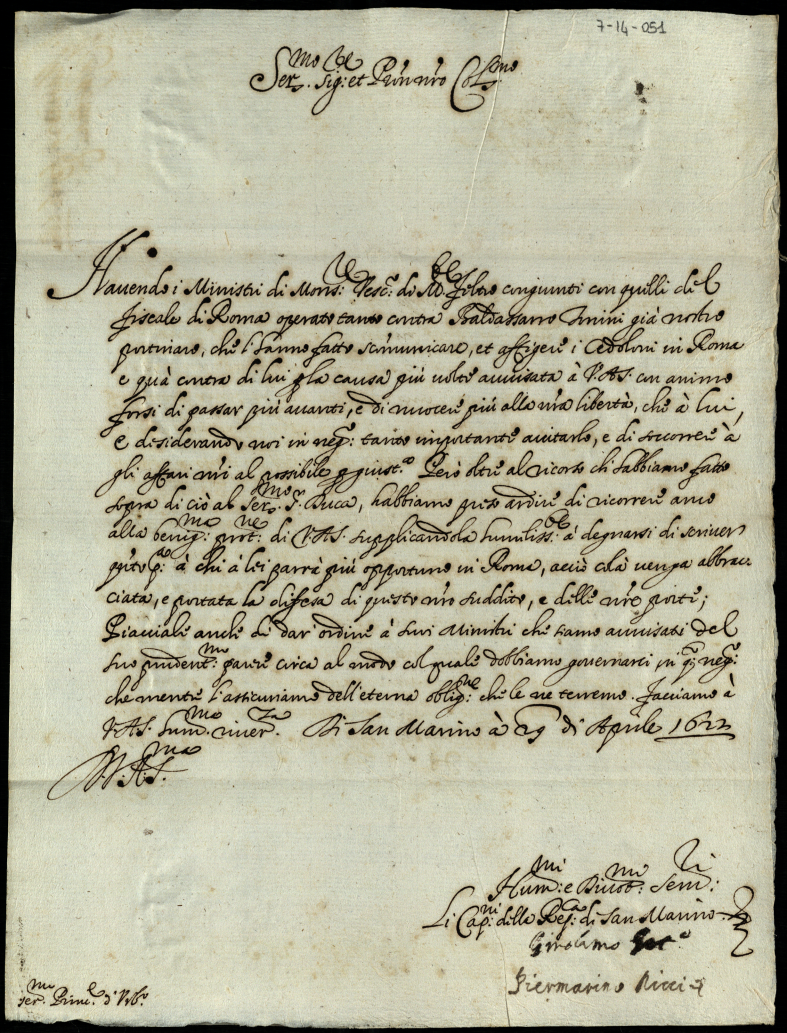 7-14-051
Ser.mo Sig.re et P'ron n'ro Col.mo
Havendo i Ministri di Mons.r Vesc.o di M. Feltre congiunti con quelli del
fiscale di Roma operato tanto contra Baldassarre Tinini già nostro
portinaro, che l'hanno fatto scomunicare, et affigere i Cedoloni in Roma
e quà contra di lui p la causa più volte avvisata à V.A.S. con animo
forsi di passar più avanti, e di nuocere più alla n'ra libertà, che à lui,
E desiderando noi in neg.o tanto importante aiutarlo, e di soccorrere à
gli affari n'ri al possibile p giust.a Però oltre al ricorso ch' habbiamo fatto
sopra di ciò al Ser.mo S.r Duca, habbiamo preso ardire di ricorrere anco
alla benig.ma prot.ne di V.A.S. supplicandola humiliss.te à degnarsi di scriver
q'to p.a à chi à lei parrà più opportuno in Roma, acciò colà venga abbrac
ciata, e portata la difesa di questo n'ro suddito, e delle n're porte;
Piacciale anche di dar' ordine à suoi Ministri che siamo avvisati del
suo prudent.mo parere circa al modo col quale dobbiamo governarci in q.o neg.o
che mentre l'assicuriamo dell'eterna oblig.ne che le ne terremo. Facciamo à
V.A.S. hum.mo river.za Di San Marino à 29 di Aprile 1622
D. V. A. S.ma
Hum.mi e Divot.mi Serri
Li Cap.ni della Rep.ca di San Marino
Girolimo
Piermarino Ricci
Ser.mo Princ.e d'Urb.o